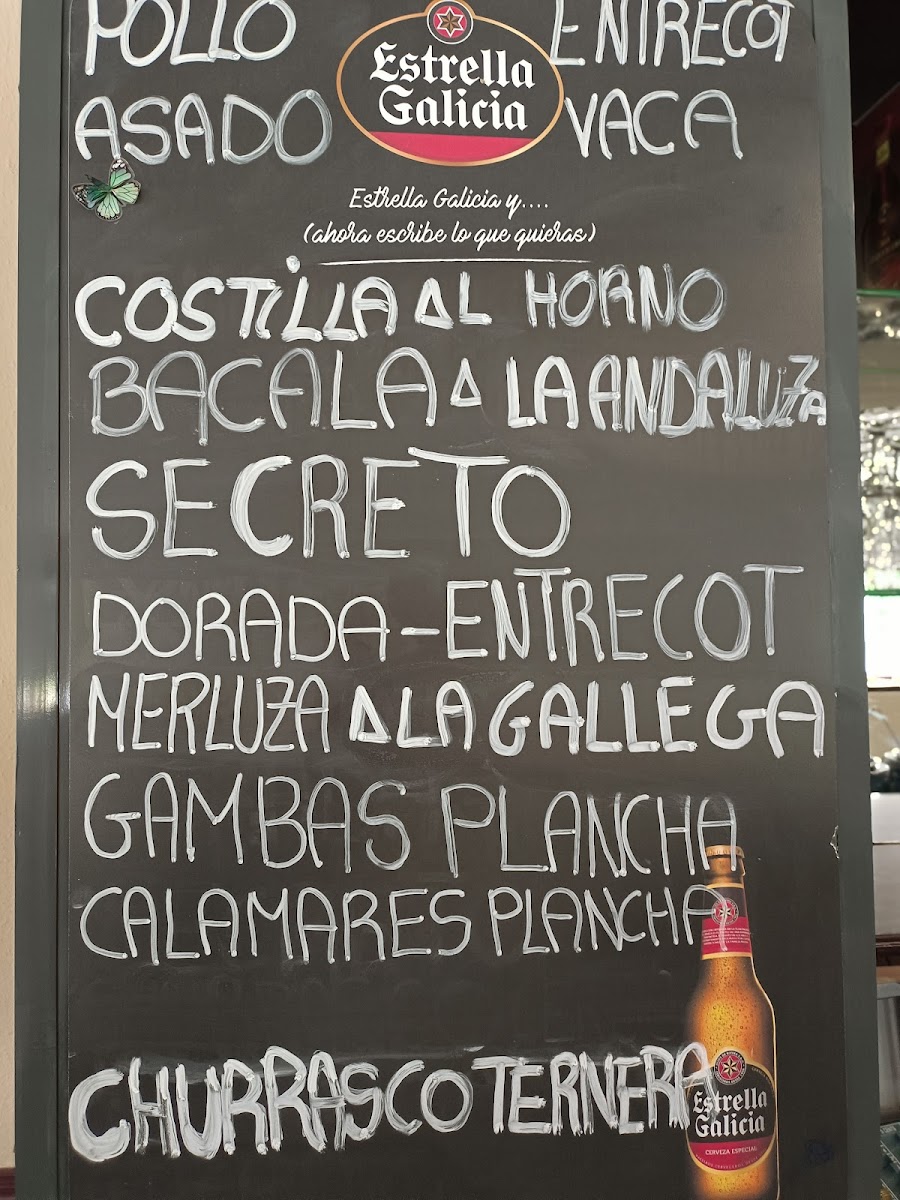 POLLO ENTRECOT
Estrella
Galicia
ASADO VACA
Estrella Galicia y....
(ahora escribe lo que quieras)
COSTiLLA AL HORNO
BACALA A LA ANDALUZA
SECRETO
DORADA - ENTRECOT
MERLUZA A LA GALLEGA
GAMBAS PLANCHA
CALAMARES PLANCHA
CHURRASCO TERNERA
Estrella
Galicia
CERVEZA ESPECIAL